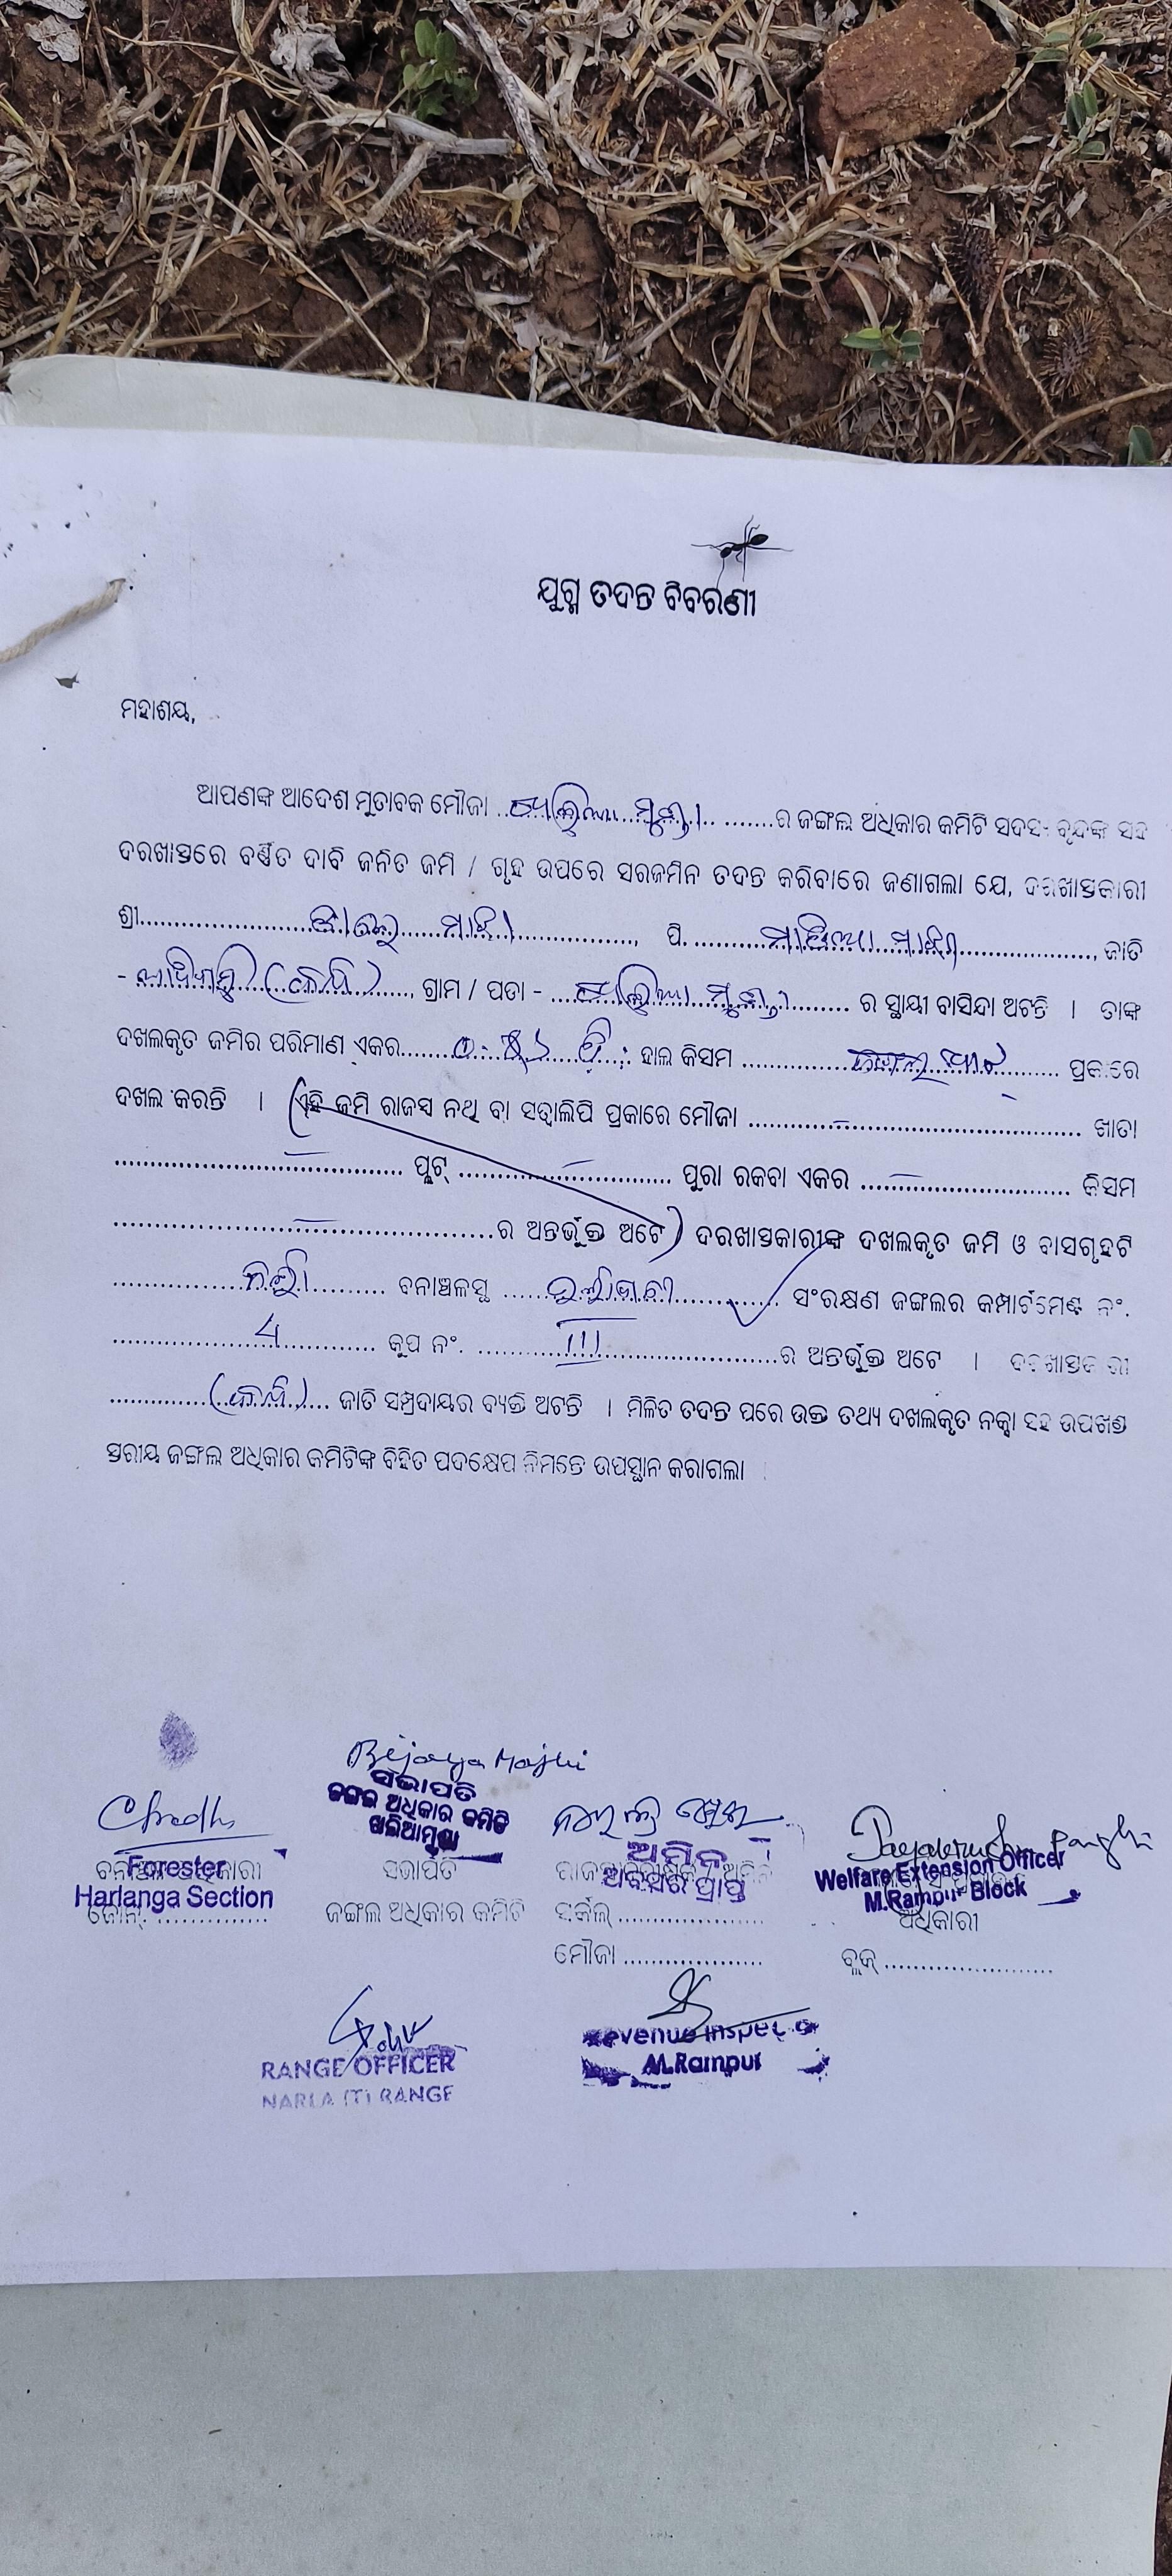 ଯୁଗ୍ମ ତଦନ୍ତ ବିବରଣୀ
ମହାଶୟ,
ଆପଣଙ୍କ ଆଦେଶ ମୁତାବକ ମୌଜା ..ଖଲିଆମୁଣ୍ଡା.. ର ଜଙ୍ଗଲ ଅଧିକାର କମିଟି ସଦସ୍ୟ ବୃନ୍ଦଙ୍କ ସହ
ଦରଖାସ୍ତରେ ବର୍ଣ୍ଣିତ ଦାବି ଜନିତ ଜମି / ଗୃହ ଉପରେ ସରଜମିନ ତଦନ୍ତ କରିବାରେ ଜଣାଗଲା ଯେ, ଦରଖାସ୍ତକାରୀ
ଶ୍ରୀ........ ମାଝୀ........, ପି. ........ ମାଝୀ........, ଜାତି
- ଆଦିବାସୀ (କନ୍ଧ)...., ଗ୍ରାମ / ପଡା - ....ଖଲିଆମୁଣ୍ଡା.... ର ସ୍ଥାୟୀ ବାସିନ୍ଦା ଅଟନ୍ତି । ତାଙ୍କ
ଦଖଲକୃତ ଜମିର ପରିମାଣ ଏକର........ ହାଲ କିସମ ........ ପ୍ରକାରେ
ଦଖଲ କରନ୍ତି । (ଏହି ଜମି ରାଜସ୍ୱ ନଥି ବା ସତ୍ୱାଲିପି ପ୍ରକାରେ ମୌଜା ........ ଖାତା
........ ପ୍ଲଟ୍ ........ ପୁରା ରକବା ଏକର ........ କିସମ
........ର ଅନ୍ତର୍ଭୁକ୍ତ ଅଟେ) ଦରଖାସ୍ତକାରୀଙ୍କ ଦଖଲକୃତ ଜମି ଓ ବାସଗୃହଟି
........ ବନାଞ୍ଚଳସ୍ଥ ........ ସଂରକ୍ଷଣ ଜଙ୍ଗଲର କମ୍ପାର୍ଟମେଣ୍ଟ ନଂ.
........4........ କୁପ ନଂ. ........III........ର ଅନ୍ତର୍ଭୁକ୍ତ ଅଟେ । ଦରଖାସ୍ତକାରୀ
........(କନ୍ଧ).... ଜାତି ସମ୍ପ୍ରଦାୟର ବ୍ୟକ୍ତି ଅଟନ୍ତି । ମିଳିତ ତଦନ୍ତ ପରେ ଉକ୍ତ ତଥ୍ୟ ଦଖଲକୃତ ନକ୍ସା ସହ ଉପଖଣ୍ଡ
ସ୍ତରୀୟ ଜଙ୍ଗଲ ଅଧିକାର କମିଟିଙ୍କ ବିହିତ ପଦକ୍ଷେପ ନିମନ୍ତେ ଉପସ୍ଥାନ କରାଗଲା ।
Bijaya Majhi
ସଭାପତି
ଜଙ୍ଗଲ ଅଧିକାର କମିଟି
ଖଲିଆମୁଣ୍ଡା
Forester
Harlanga Section
ଜୋନ୍. ................
ସଭାପତି
ଜଙ୍ଗଲ ଅଧିକାର କମିଟି
ଅମିନ
ଅବସର ପ୍ରାପ୍ତ
ସର୍କଲ୍ ....................
ମୌଜା ....................
Welfare Extension Officer
M.Rampur Block
ଅଧିକାରୀ
ବ୍ଲକ୍ ........................
RANGE OFFICER
NARLA (T) RANGE
Revenue Inspector
M.Rampur